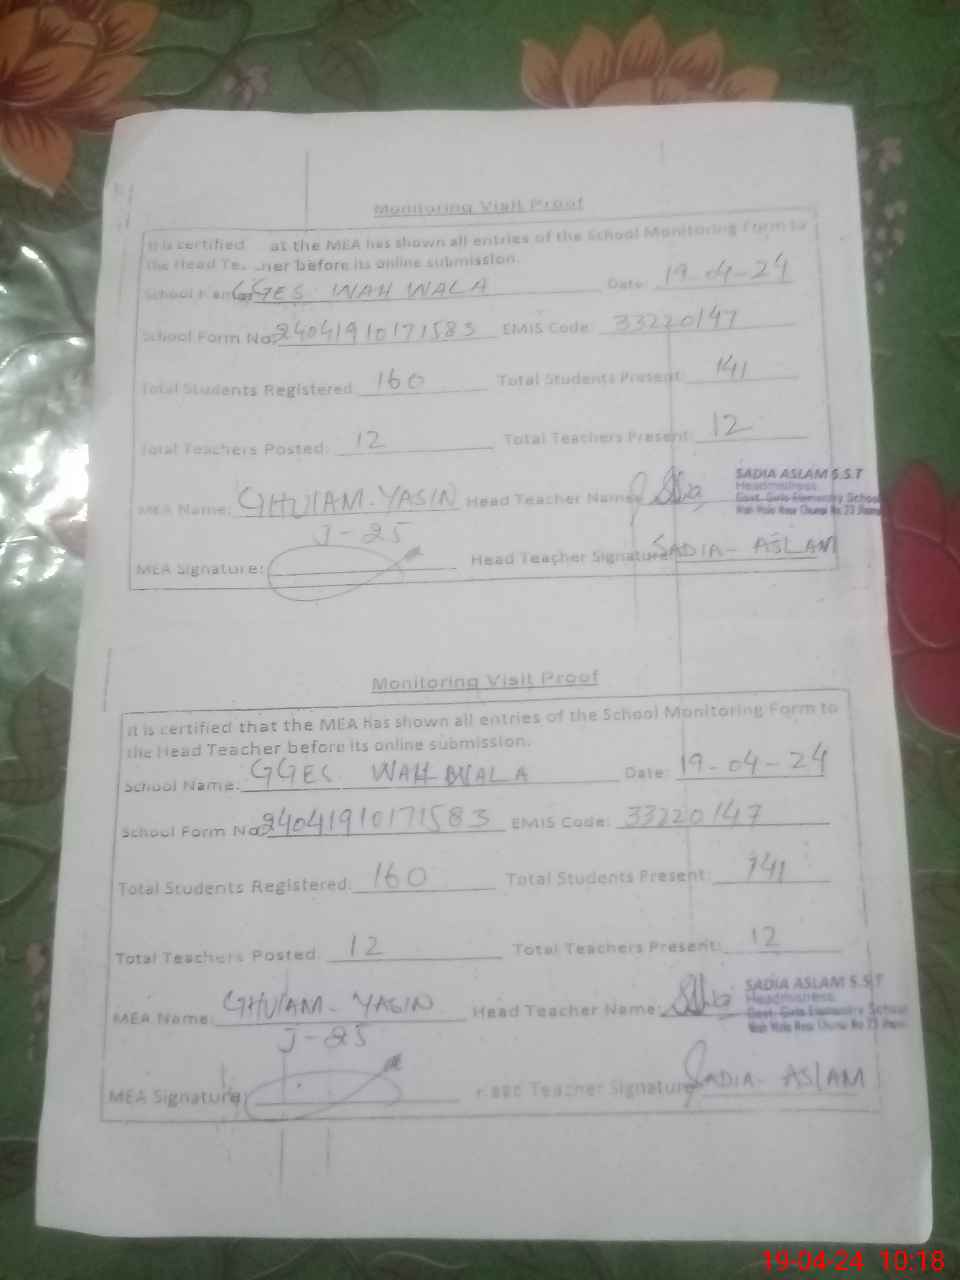 Monitoring Visit Proof
It is certified at the MEA has shown all entries of the School Monitoring Form to
the Head Te her before its online submission.
School Name GGES WAH WALA Date: 19-04-24
School Form No: 24041910171583 EMIS Code: 33220147
Total Students Registered 160 Total Students Present: 141
Total Teachers Posted: 12 Total Teachers Present: 12
MEA Name: GHULAM-YASIN Head Teacher Name
J-25
SADIA ASLAM S.S.T
Headmistress
Govt. Girls Elementry School
MEA Signature: Head Teacher Signature SADIA- ASLAM
Monitoring Visit Proof
It is certified that the MEA has shown all entries of the School Monitoring Form to
the Head Teacher before its online submission.
School Name: GGES WAH WALA Date: 19-04-24
School Form No: 24041910171583 EMIS Code: 33220147
Total Students Registered: 160 Total Students Present: 141
Total Teachers Posted 12 Total Teachers Present: 12
MEA Name: GHULAM-YASIN Head Teacher Name:
J-25
SADIA ASLAM S.S.T
Headmistress
Govt. Girls Elementry School
MEA Signature: Teacher Signature SADIA- ASLAM
19-04-24 10:18